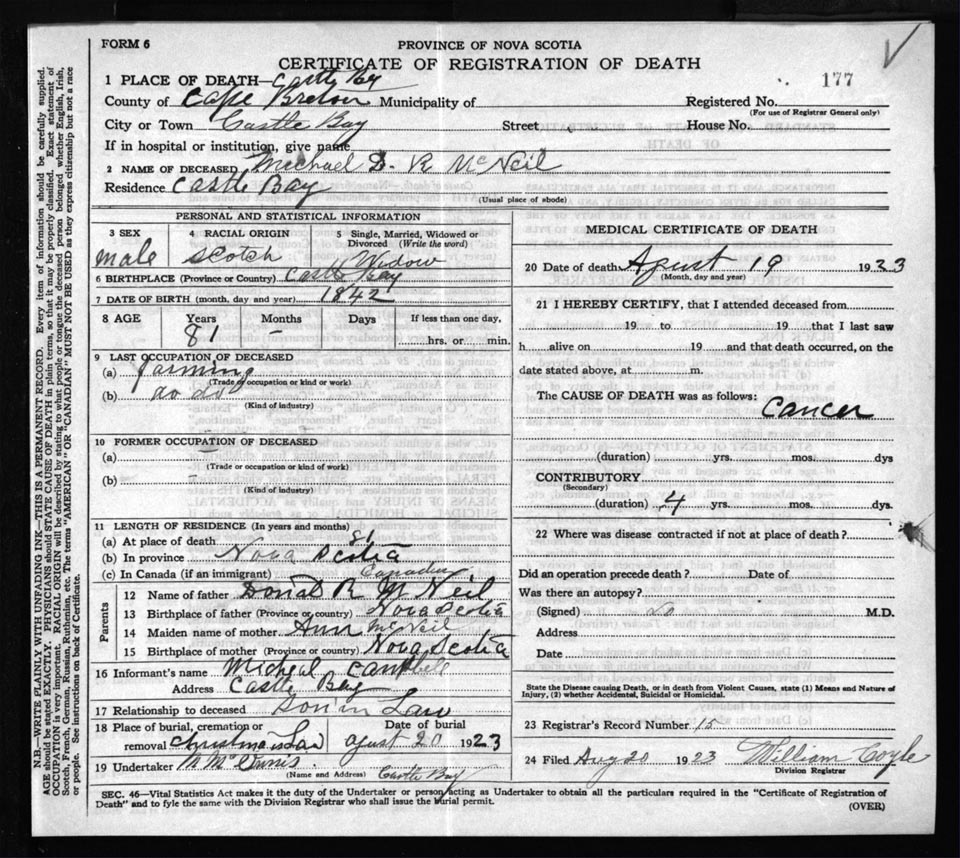 FORM 6
PROVINCE OF NOVA SCOTIA
CERTIFICATE OF REGISTRATION OF DEATH
177
1 PLACE OF DEATH—Castle Bay
County of Cape Breton Municipality of
Registered No.
(For use of Registrar General only)
City or Town Castle Bay Street House No.
If in hospital or institution, give name
2 NAME OF DECEASED Michael D. R McNeil
Residence Castle Bay
(Usual place of abode)
PERSONAL AND STATISTICAL INFORMATION
3 SEX
4 RACIAL ORIGIN
5 Single, Married, Widowed or Divorced (Write the word)
male Scotch Widow
6 BIRTHPLACE (Province or Country) Castle Bay
7 DATE OF BIRTH (month, day and year) 1842
8 AGE Years Months Days If less than one day,
81 – hrs. or min.
9 LAST OCCUPATION OF DECEASED
(a) Farming
(Trade or occupation or kind or work)
(b) do do
(Kind of industry)
10 FORMER OCCUPATION OF DECEASED
(a) –
(Trade or occupation or kind or work)
(b) –
(Kind of industry)
11 LENGTH OF RESIDENCE (In years and months)
(a) At place of death 81
(b) In province Nova Scotia
(c) In Canada (if an immigrant)
Parents
12 Name of father Donald R McNeil
13 Birthplace of father (Province or country) Nova Scotia
14 Maiden name of mother Ann McNeil
15 Birthplace of mother (Province or country) Nova Scotia
16 Informant's name Micheal Campbell
Address Castle Bay
17 Relationship to deceased Son in Law
18 Place of burial, cremation or removal Date of burial
Agust 20 1923
19 Undertaker
(Name and Address) Castle Bay
MEDICAL CERTIFICATE OF DEATH
20 Date of death Agust 19 1923
(Month, day and year)
21 I HEREBY CERTIFY, that I attended deceased from
19 to 19 that I last saw
h alive on 19 and that death occurred, on the
date stated above, at m.
The CAUSE OF DEATH was as follows:
Cancer
(duration) yrs. mos. dys
CONTRIBUTORY
(Secondary)
(duration) 4 yrs. mos. dys.
22 Where was disease contracted if not at place of death?
Did an operation precede death? Date of
Was there an autopsy?
(Signed) M.D.
Address
Date
State the Disease causing Death, or in death from Violent Causes, state (1) Means and Nature of
Injury, (2) whether Accidental, Suicidal or Homicidal.
23 Registrar's Record Number 15
24 Filed Aug 20 1923 William Coyle
Division Registrar
SEC. 46—Vital Statistics Act makes it the duty of the Undertaker or person acting as Undertaker to obtain all the particulars required in the "Certificate of Registration of
Death" and to fyle the same with the Division Registrar who shall issue the burial permit.
(OVER)
N.B.—WRITE PLAINLY WITH UNFADING INK—THIS IS A PERMANENT RECORD. Every item of information should be carefully supplied.
AGE should be stated EXACTLY. PHYSICIANS should STATE CAUSE OF DEATH in plain terms, so that it may be properly classified. Exact statement of
OCCUPATION is very important. RACIAL ORIGIN will be described by stating to what people or tongue the deceased person belonged, whether English, Irish,
Scotch, French, German, Russian, Ruthenian, etc. The terms "AMERICAN" OR "CANADIAN" MUST NOT BE USED as they express citizenship but not a race
or people. See instructions on back of Certificate.